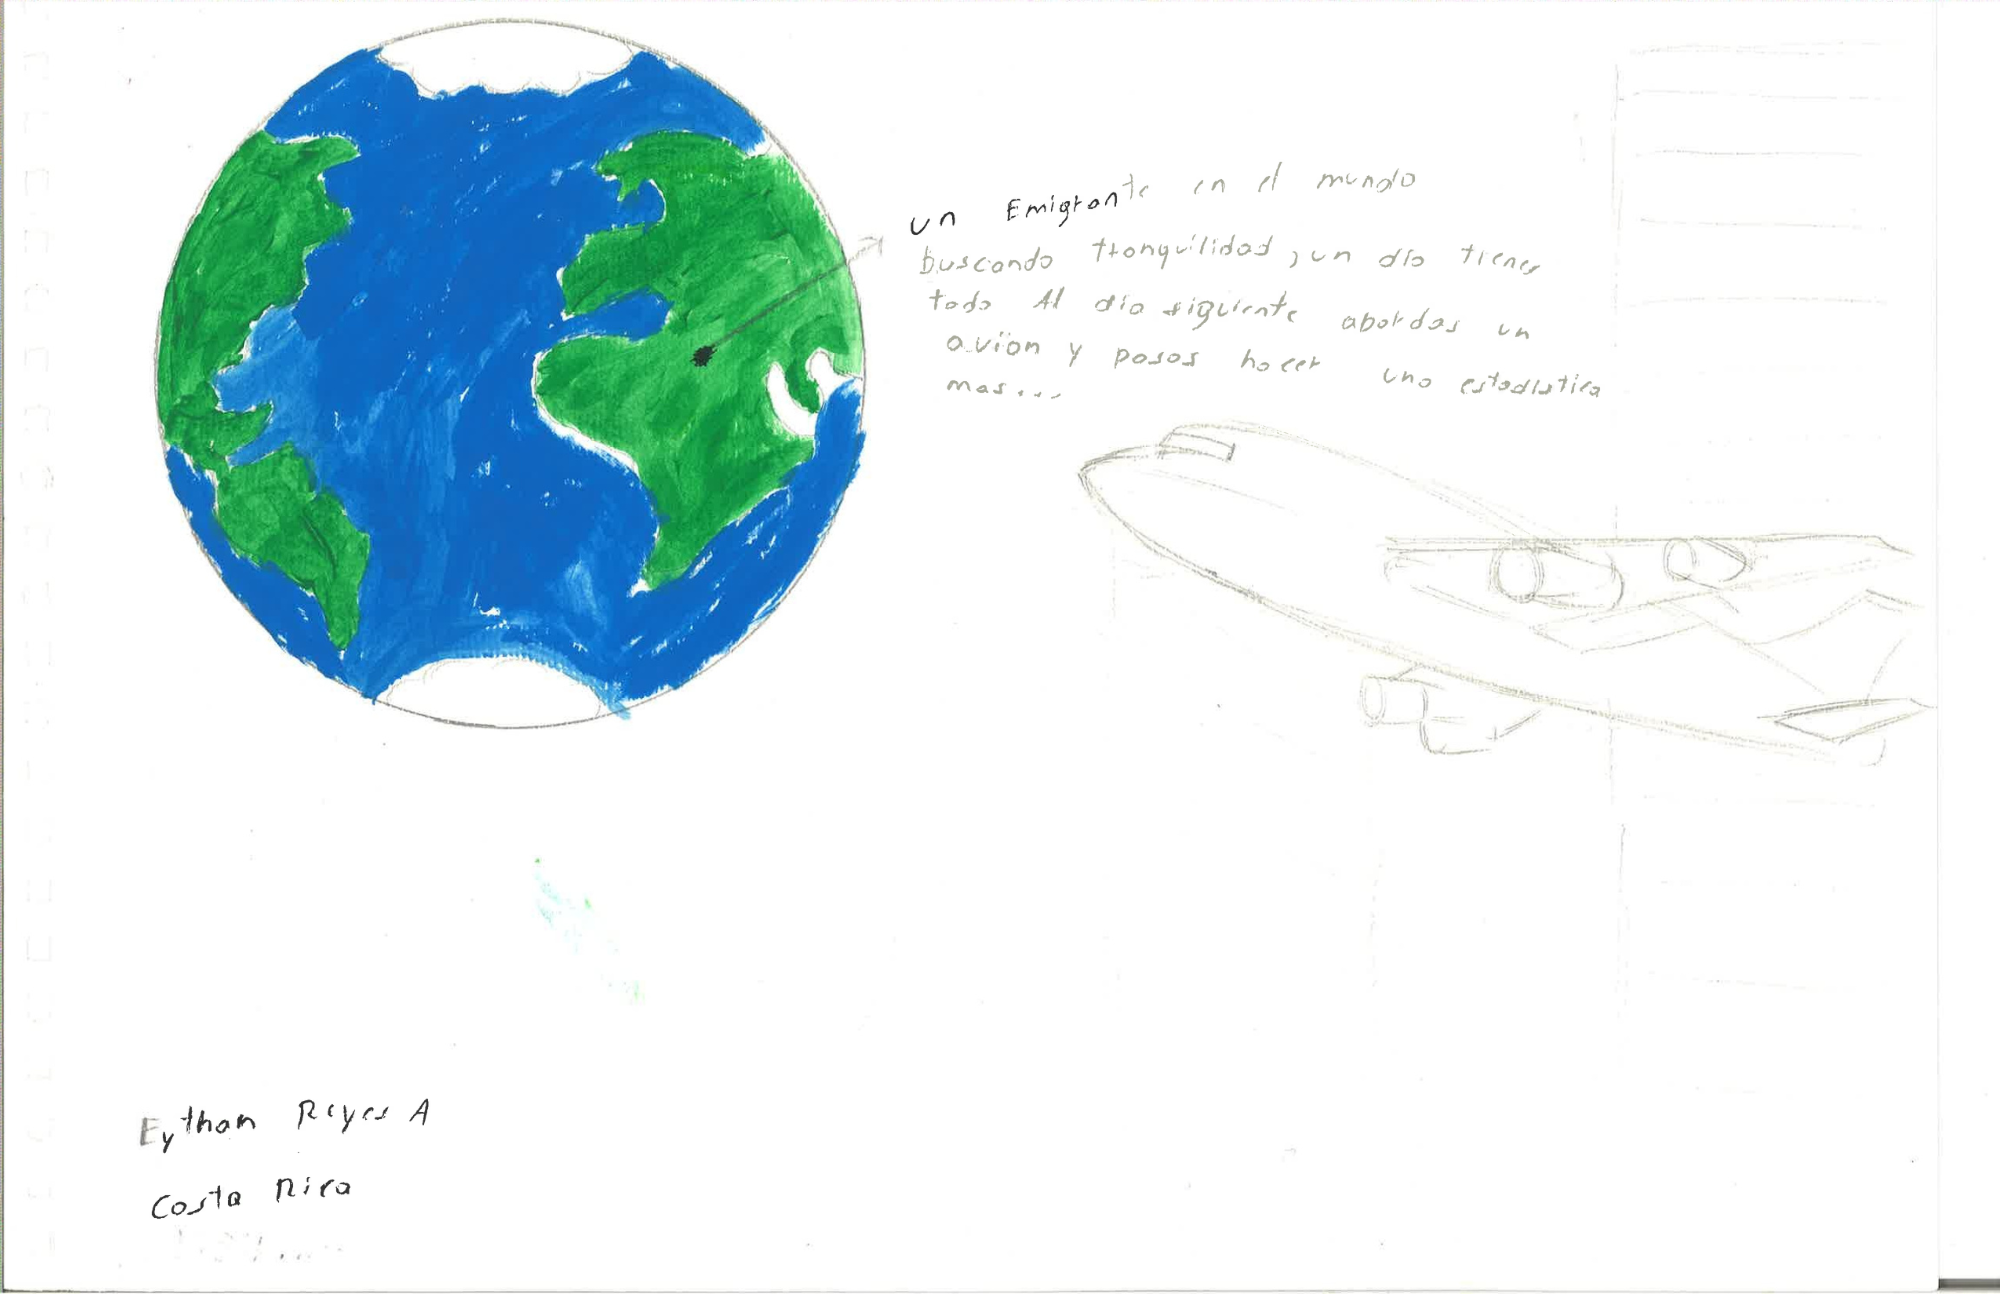 un Emigrante en el mundo
buscando tranquilidad, un dío tienes
todo Al dío siguiente abordas un
avion y pasas hacer una estadistica
mas...
Eythan Reyes A
Costa Rica